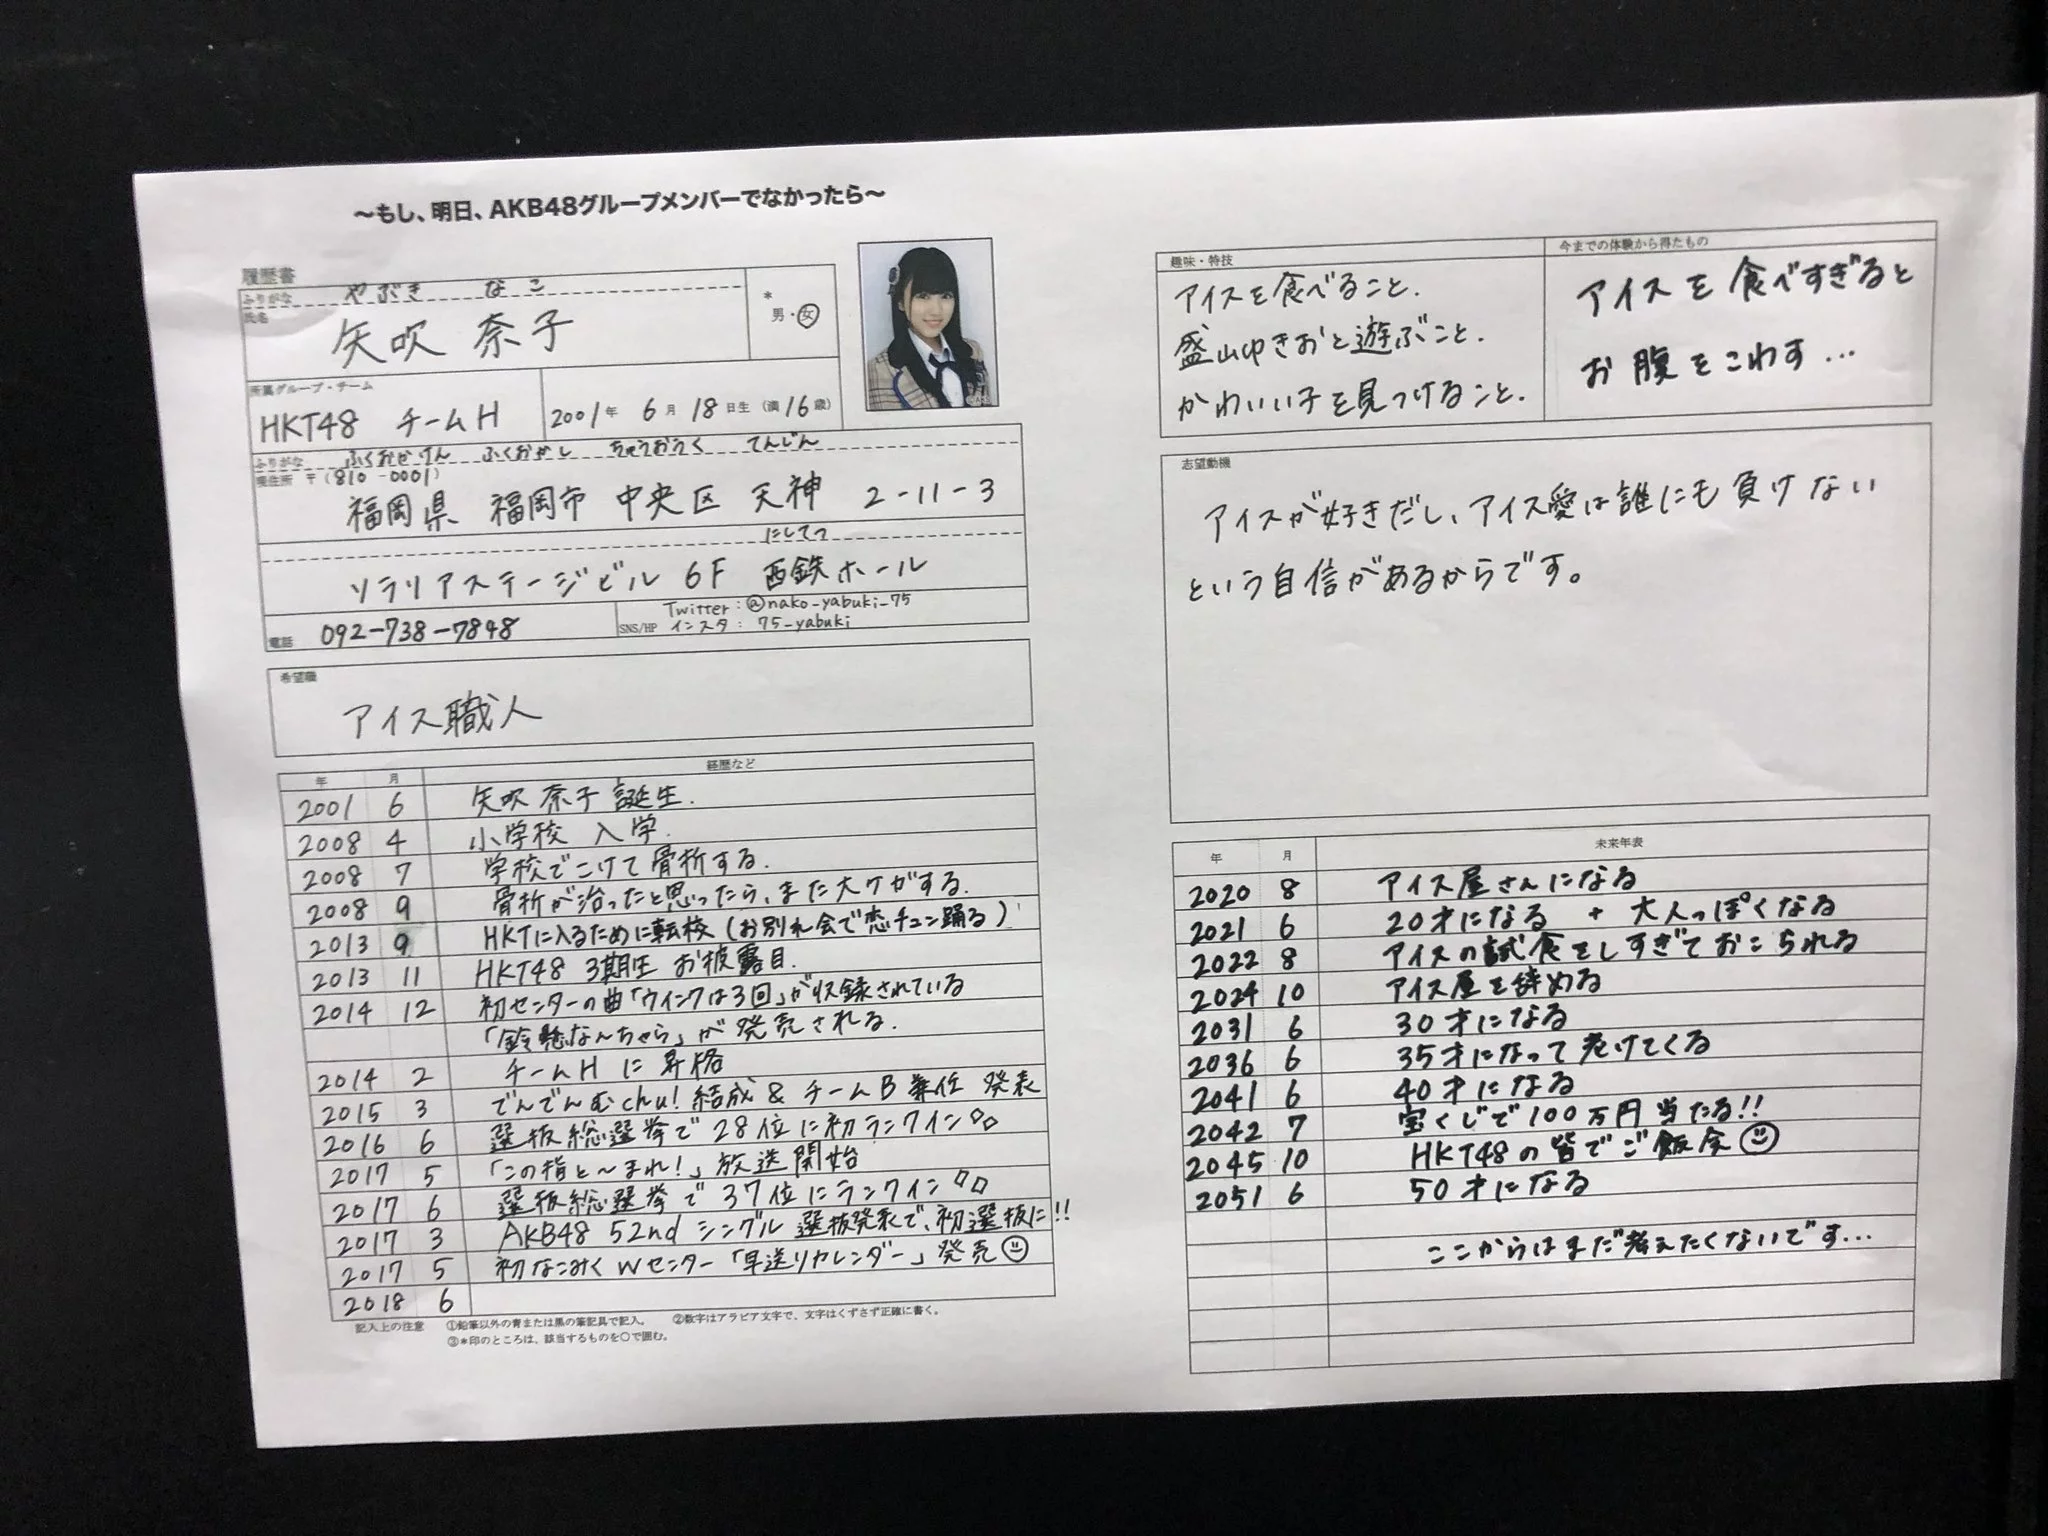 ～もし、明日、AKB48グループメンバーでなかったら～
履歴書
ふりがな やぶき なこ
氏名 矢吹 奈子
*
男・女
所属グループ・チーム
HKT48 チームH
2001年 6月 18日生 (満16歳)
ふりがな ふくおかけん ふくおかし ちゅうおうく てんじん
現住所 〒(810-0001)
福岡県 福岡市 中央区 天神 2-11-3
にしてつ
ソラリアステージビル 6F 西鉄ホール
電話 092-738-7848
SNS/HP Twitter:@nako_yabuki_75
インスタ: 75_yabuki
希望職
アイス職人
年 月 経歴など
2001 6 矢吹 奈子 誕生.
2008 4 小学校 入学.
2008 7 学校でこけて骨折する.
2008 9 骨折が治ったと思ったら、また大ケガする.
2013 9 HKTに入るために転校(お別れ会で恋チュン踊る)
2013 11 HKT48 3期生 お披露目.
2014 12 初センターの曲「ウインクは3回」が収録されている
「鈴懸なんちゃら」が発売される.
2014 2 チームHに昇格
2015 3 でんでんむchu!結成&チームB兼任 発表
2016 6 選抜総選挙で28位に初ランクイン
2017 5 「この指と～まれ!」放送開始
2017 6 選抜総選挙で37位にランクイン
2017 3 AKB48 52nd シングル 選抜発表で、初選抜に!!
2017 5 初なこみくWセンター「早送りカレンダー」発売
2018 6
記入上の注意 ①鉛筆以外の青または黒の筆記具で記入。 ②数字はアラビア文字で、文字はくずさず正確に書く。
③*印のところは、該当するものを○で囲む。
趣味・特技
アイスを食べること.
盛山ゆきおと遊ぶこと.
かわいい子を見つけること.
今までの体験から得たもの
アイスを食べすぎると
お腹をこわす…
志望動機
アイスが好きだし、アイス愛は誰にも負けない
という自信があるからです。
年 月 未来年表
2020 8 アイス屋さんになる
2021 6 20才になる + 大人っぽくなる
2022 8 アイスの試食をしすぎておこられる
2024 10 アイス屋を辞める
2031 6 30才になる
2036 6 35才になって老けてくる
2041 6 40才になる
2042 7 宝くじで100万円当たる!!
2045 10 HKT48の皆でご飯会
2051 6 50才になる
ここからはまだ考えたくないです…